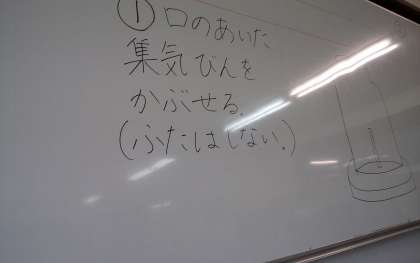 ① 口のあいた
集気びんを
かぶせる。
(ふたはしない。)